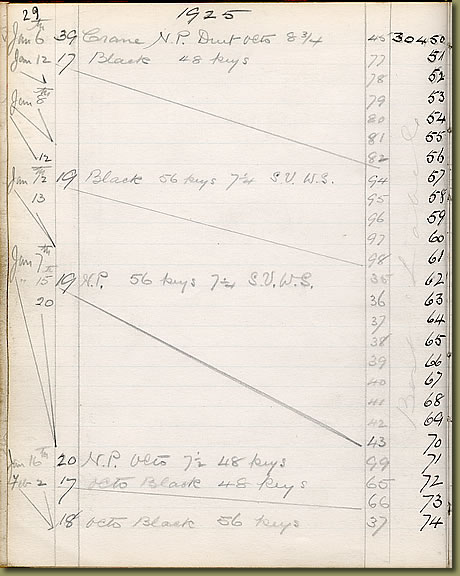 29
1925
Jan 6th 39 Crane N.P. Duet octo 8 3/4 45 30450
Jan 12 17 Black 48 keys 77 51
78 52
Jan 8th 79 53
80 54
81 55
12 82 56
Jan 12th 19 Black 56 keys 7 1/4 S.V. W.S. 94 57
13 95 58
96 59
97 60
98 61
Jan 7th
" 15 19 N.P. 56 keys 7 1/4 S.V.W.S. 35 62
20 36 63
37 64
38 65
39 66
40 67
41 68
42 69
43 70
Jan 16th 20 N.P. Octo 7 1/2 48 keys 99 71
Feb 2 17 octo Black 48 keys 65 72
66 73
18 octo Black 56 keys 37 74